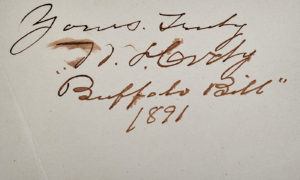 Yours. Truly
W. F. Cody
"Buffalo Bill"
1891